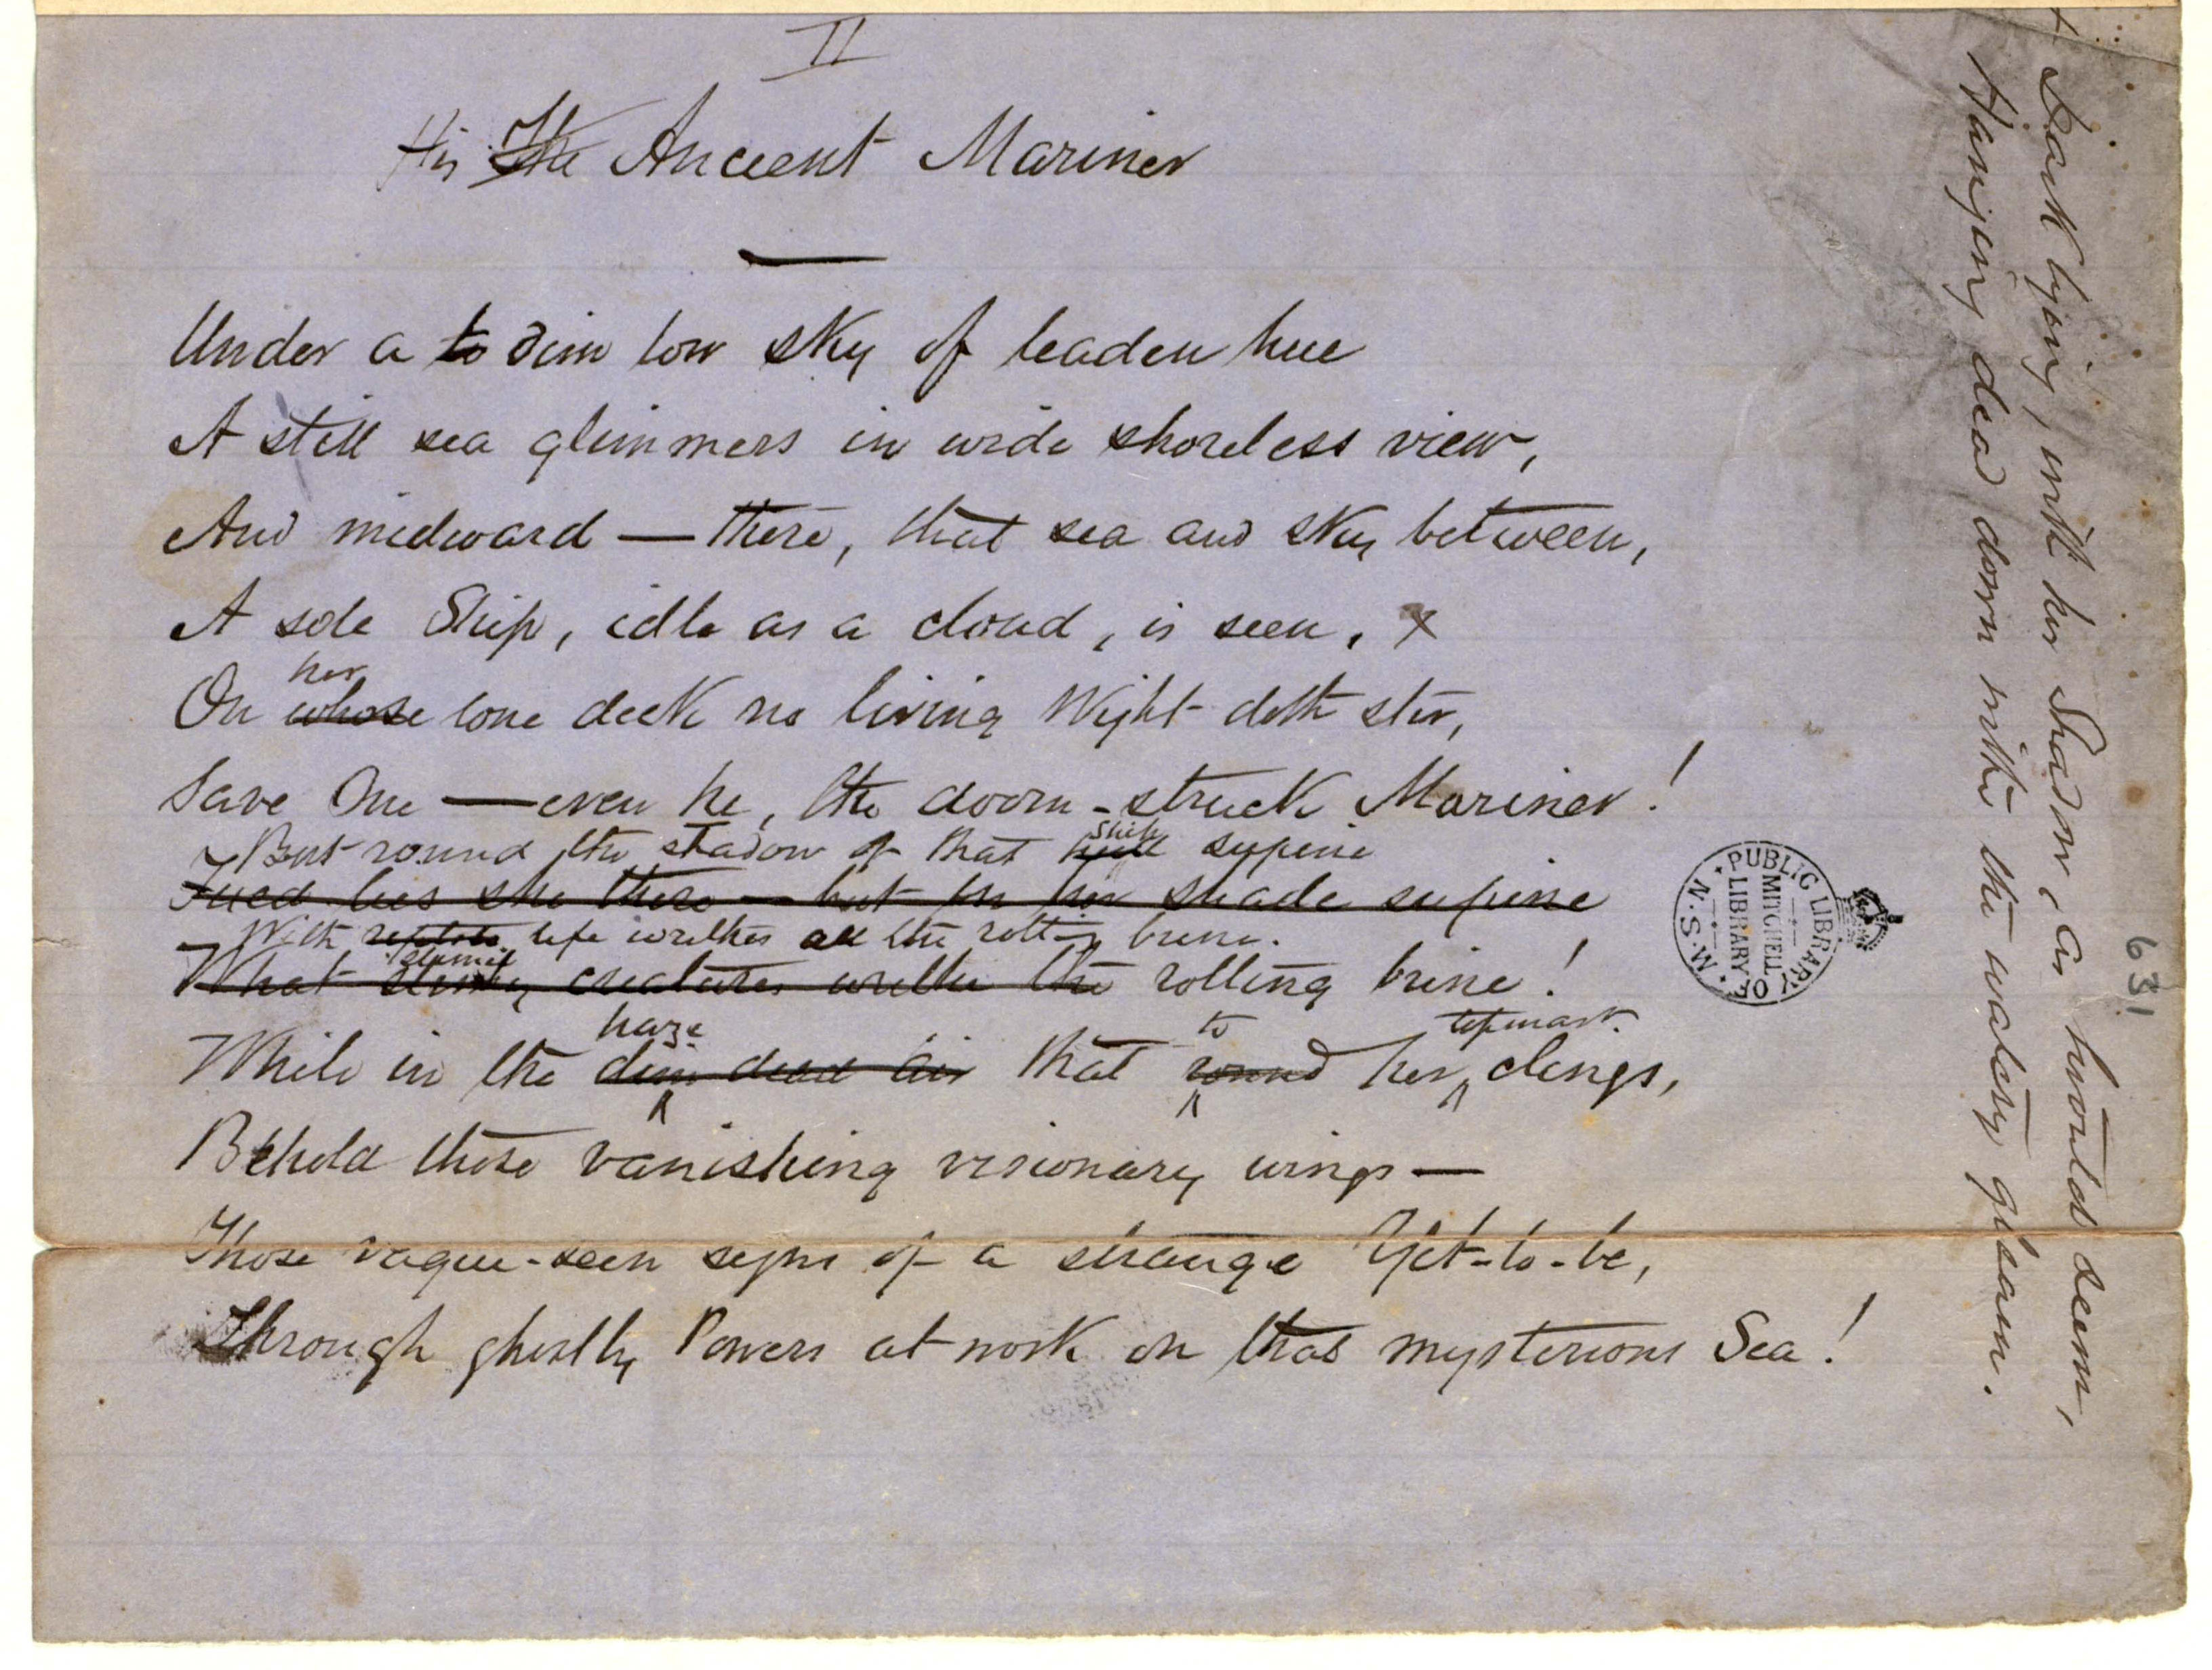 II
His The Ancient Mariner
Under a to dim low sky of leaden hue
A still sea glimmers in wide shoreless view,
And midward — there, that sea and sky between,
A sole Ship, idle as a cloud, is seen, x
her
On whose lone deck no living Wight doth stir,
Save One — even he, the doom-struck Mariner!
Ship
But round the shadow of that hull supine
lies she there — but in her shade supine
With reptile life writhes all the rotting brine.
slimy
What creatures writhe the rolling brine!
haze to topmast
While in the dim dead air that round her clings,
Behold those vanishing visionary wings —
Those vague-seen signs of a strange Yet-to-be,
Through ghostly Powers at work on that mysterious Sea!
x Dark lying, with her Shadow, as 'twould seem,
Hanging dead down with the watery gleam.
63
PUBLIC LIBRARY OF N.S.W.
MITCHELL
LIBRARY